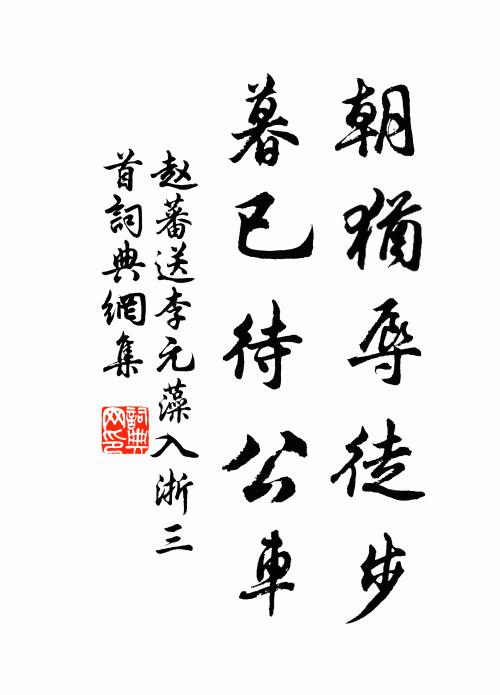 朝猶辱徒步
暮已待公車
赵蕃送李元藻入浙三
首詞典網集
詞典网印